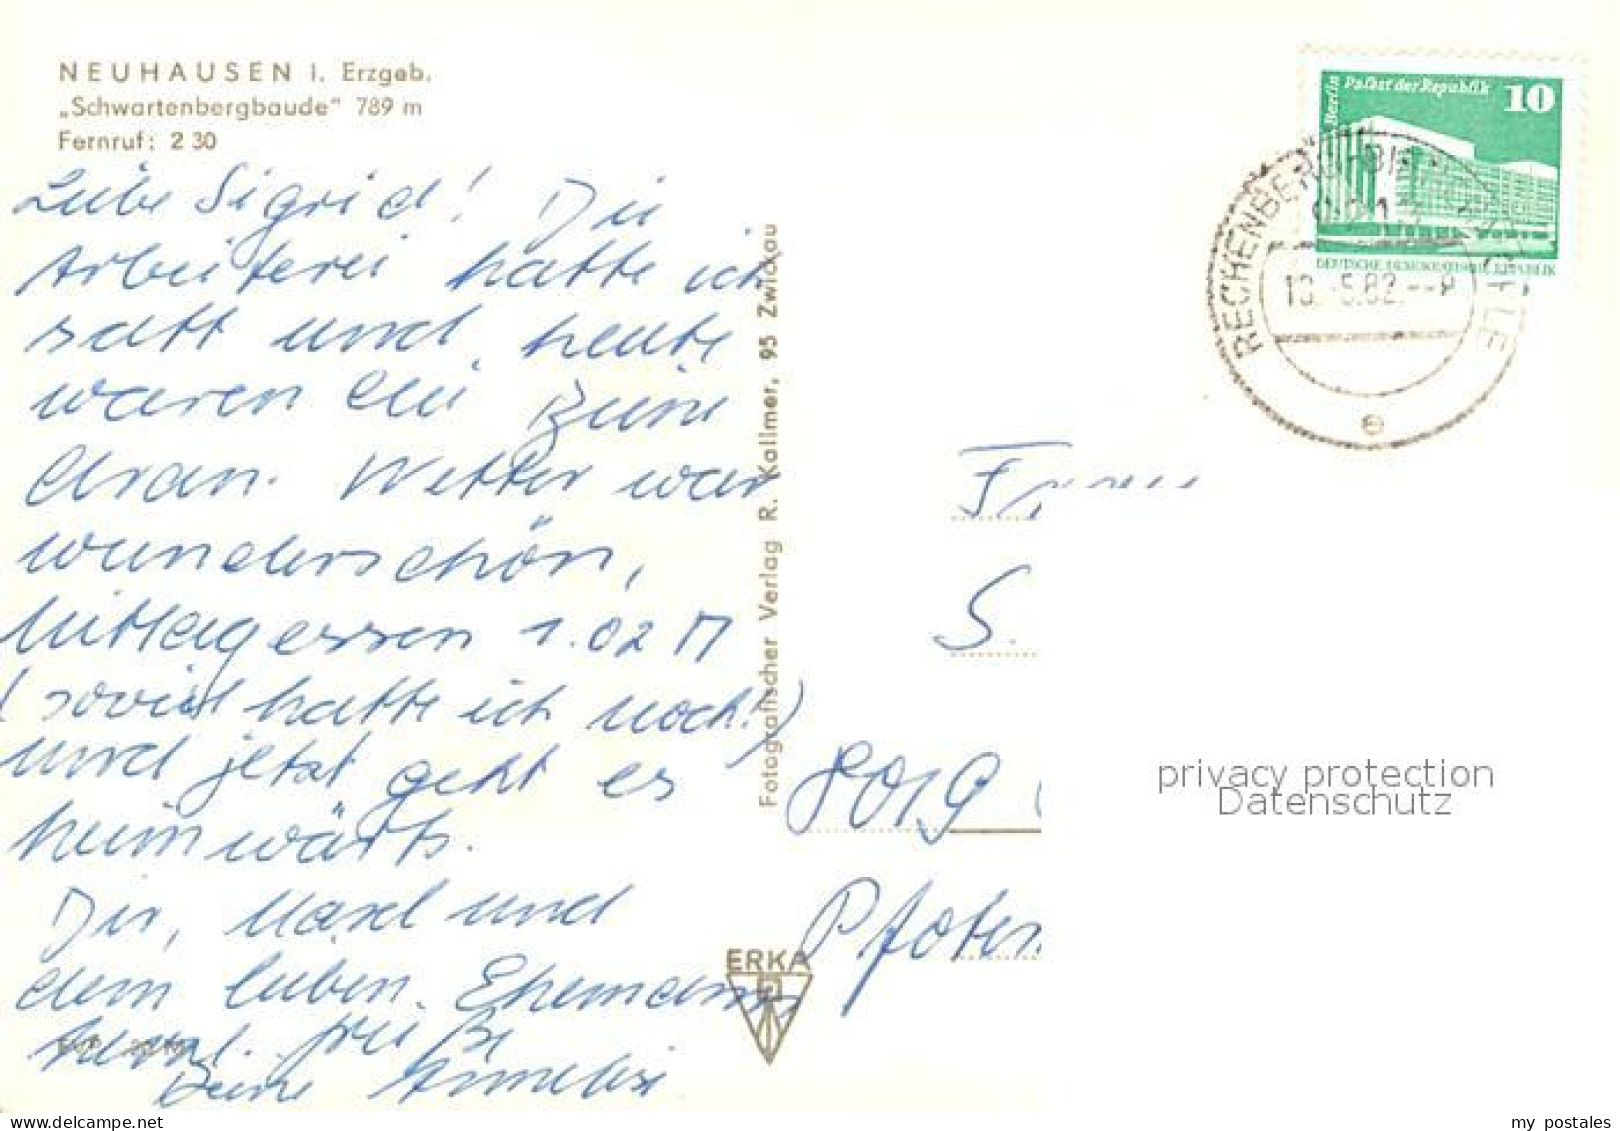 NEUHAUSEN i. Erzgeb.
„Schwartenbergbaude" 789 m
Fernruf: 2 30
Liebe Sigrid! Die
Arbeiterei hatte ich
satt und heute
waren die Beine
dran. Wetter war
wunderschön,
Mittagessen 1.02 M
(soviel hatte ich noch!)
und jetzt geht es
heimwärts.
Dir, und
dem lieben Ehemann
herzl. Grüße
Deine Anneliese
Fotografischer Verlag R. Kallmer, 95 Zwickau
ERKA
Berlin Palast der Republik 10
DEUTSCHE DEMOKRATISCHE REPUBLIK
RECHENBERG-BIENENMÜHLE
5.82
e
Frau
S.
8019
privacy protection
Datenschutz
my postales
www.delcampe.net